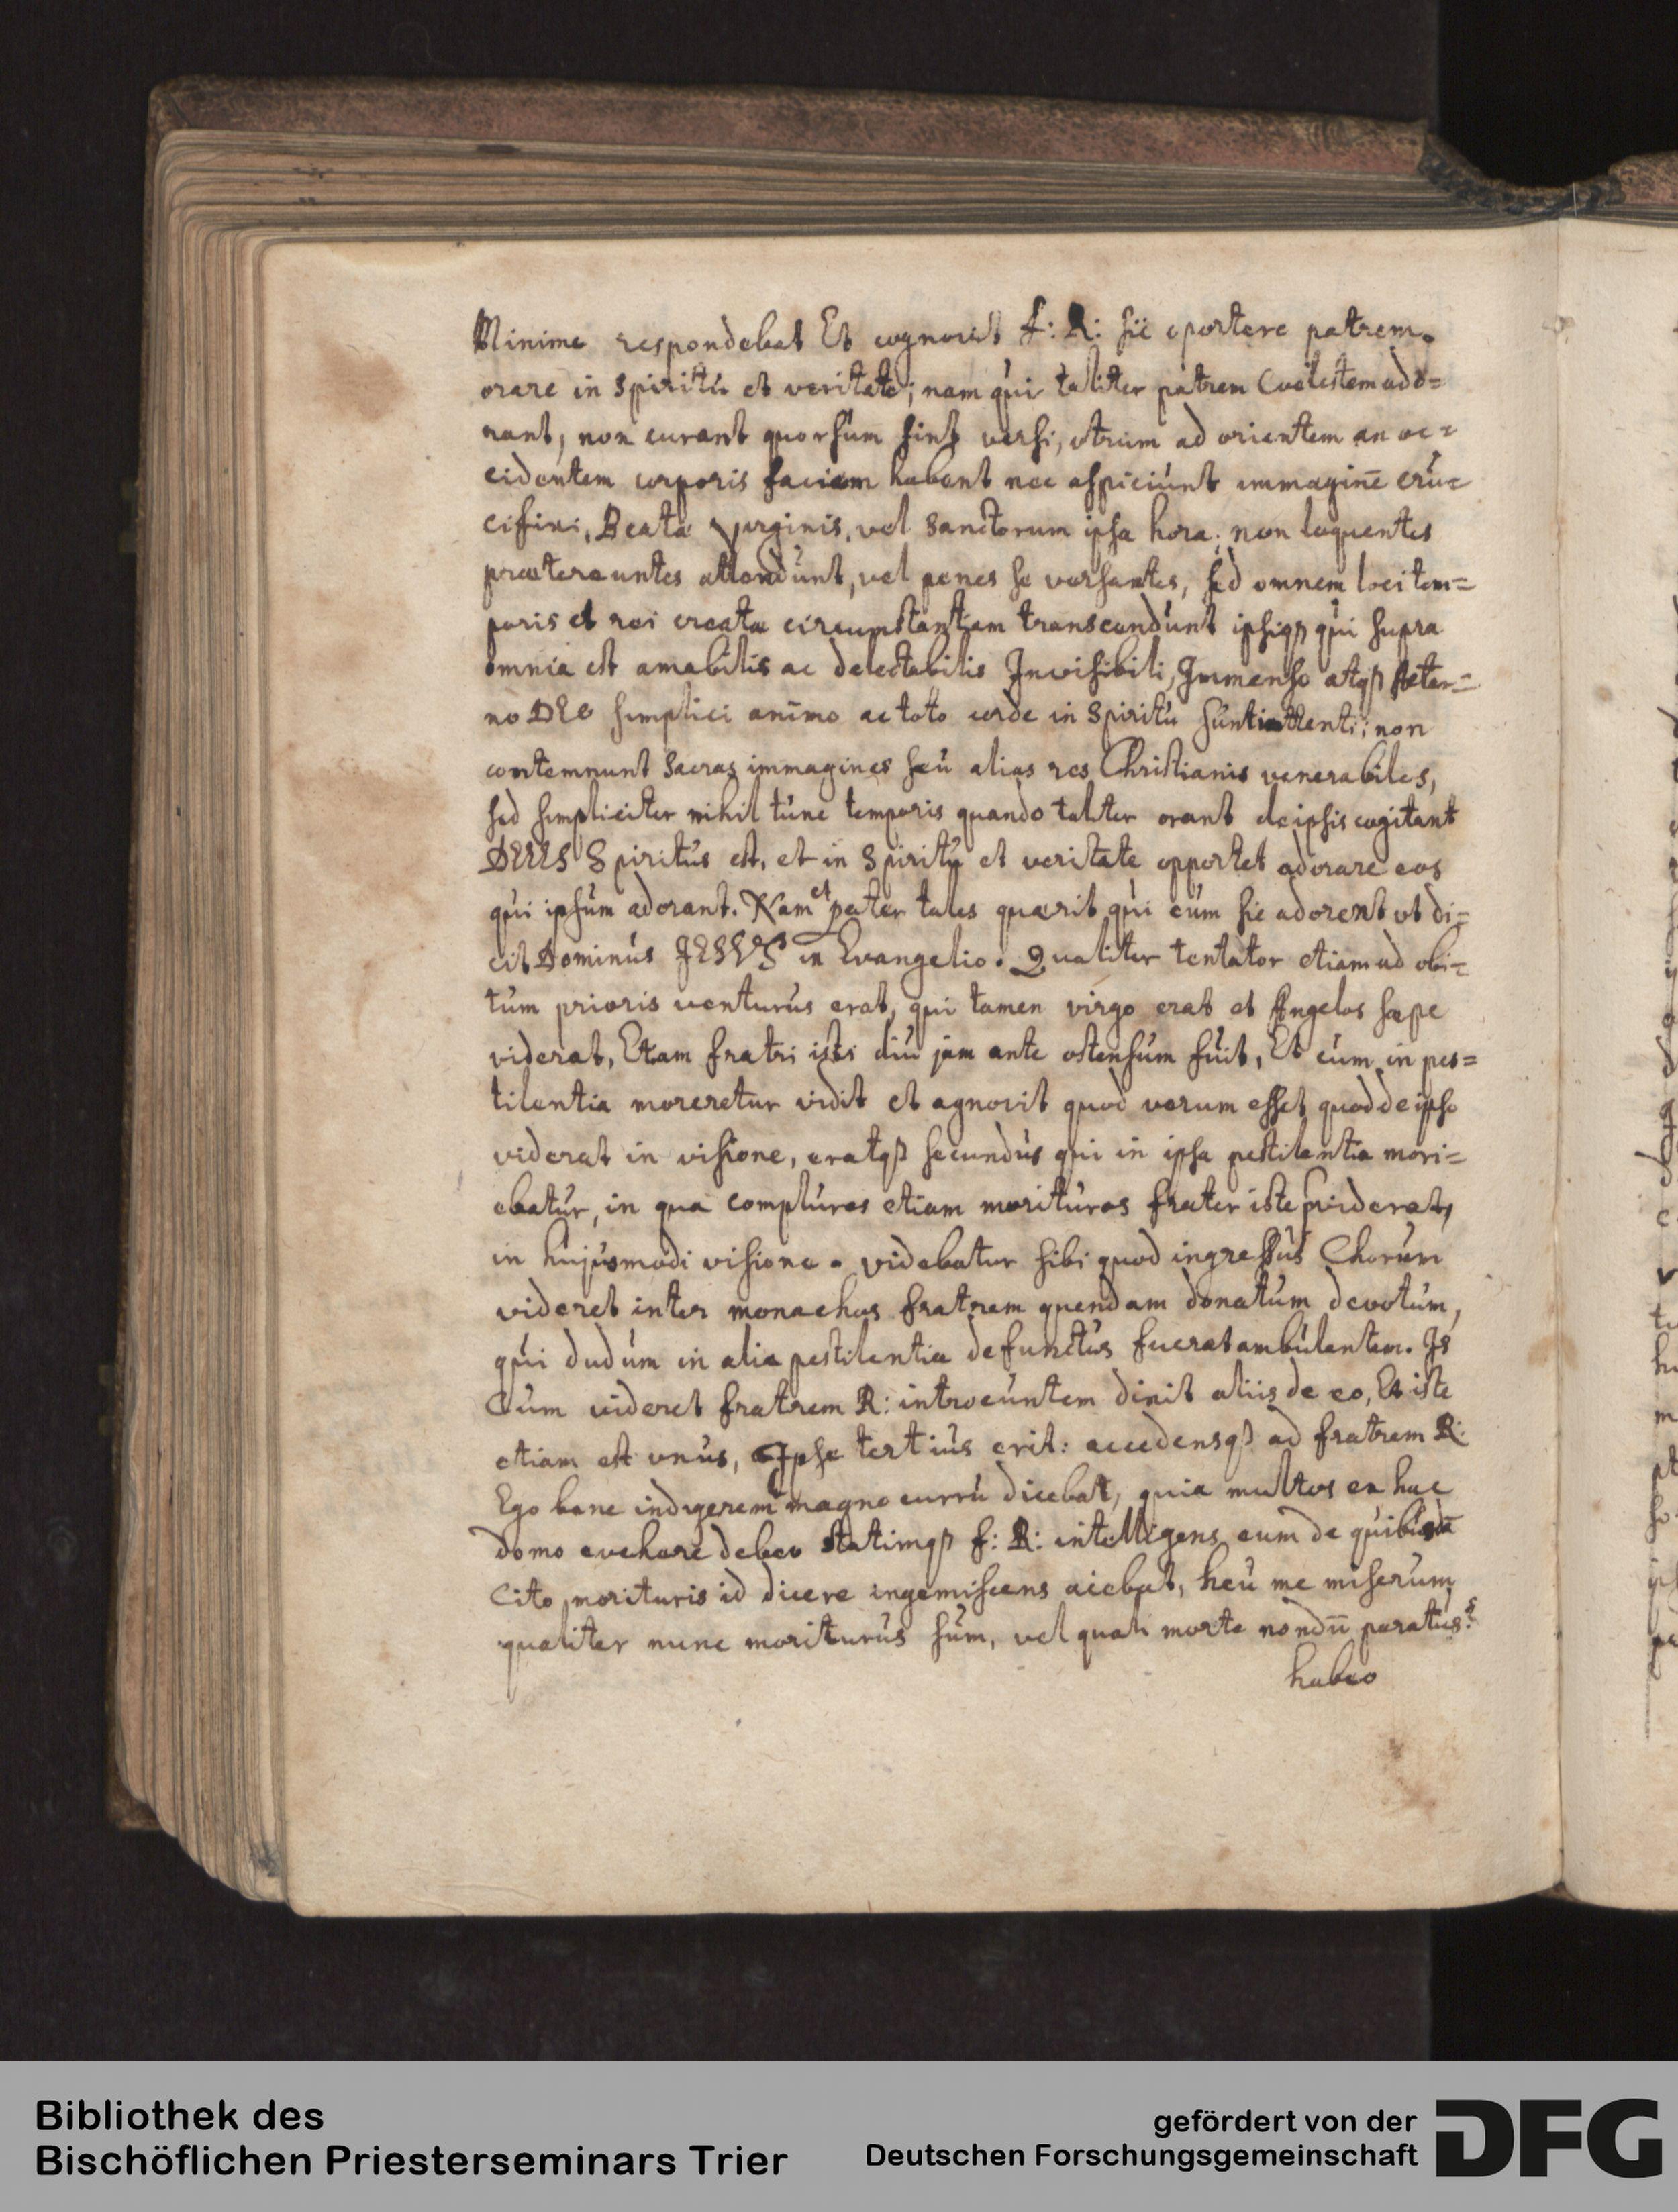 Minime respondebat Et cognovit f: R: sic oportere patrem
orare in Spiritu et veritate; nam qui taliter patrem Coelestem ado=
rant, non curant quorsum sint versi, vtrum ad orientem an oc=
cidentem corporis faciem habent nec aspiciunt immaginē cru=
cifixi, Beatae Virginis, vel Sanctorum ipsa hora; non loquentes
praetereuntes attendunt, vel penes se versantes, sed omnem loci tem=
poris et rei creatae circumstantiam transcendunt ipsiqꝫ qui supra
omnia est amabilis ac delectabilis Invisibili, Immenso atqꝫ Aeter=
no DEO simplici animo ac toto corde in Spiritu sunt intenti; non
contemnunt Sacras immagines seu alias res Christianis venerabiles,
sed simpliciter nihil tunc temporis quando taliter orant de ipsis cogitant
DEUS Spiritus est, et in Spiritu et veritate opportet adorare eos
qui ipsum adorant. Nam et pater tales quaerit qui eum sic adorent vt di=
cit Dominus JESUS in Evangelio. Qualiter tentator etiam ad obi=
tum prioris venturus erat, qui tamen virgo erat et Angelos saepe
viderat, Etiam fratri isti diu jam ante ostensum fuit, Et cum in pes=
tilentia moreretur vidit et agnovit quod verum esset quod de ipso
viderat in visione, eratqꝫ secundus qui in ipsa pestilentia mori=
ebatur, in qua complures etiam morituros frater iste praeviderat,
in hujusmodi visione. videbatur sibi quod ingressus Chorum
videret inter monachos fratrem quendam donatum devotum,
qui dudum in alia pestilentia defunctus fuerat ambulantem. Is
Cum videret fratrem R: introeuntem dixit aliis de eo, Et iste
etiam est vnus, Ipse tertius erit: accedensqꝫ ad fratrem R:
Ego bene indigerem magno curru dicebat, quia multos ex hac
domo evehere debeo statimqꝫ f: R: intelligens eum de quibusdā
Cito morituris id dicere ingemiscens aiebat, heu me miserum
qualiter nunc moriturus sum, vel quasi morte nondū paratus:
habeo
Bibliothek des
Bischöflichen Priesterseminars Trier
gefördert von der
Deutschen Forschungsgemeinschaft
DFG